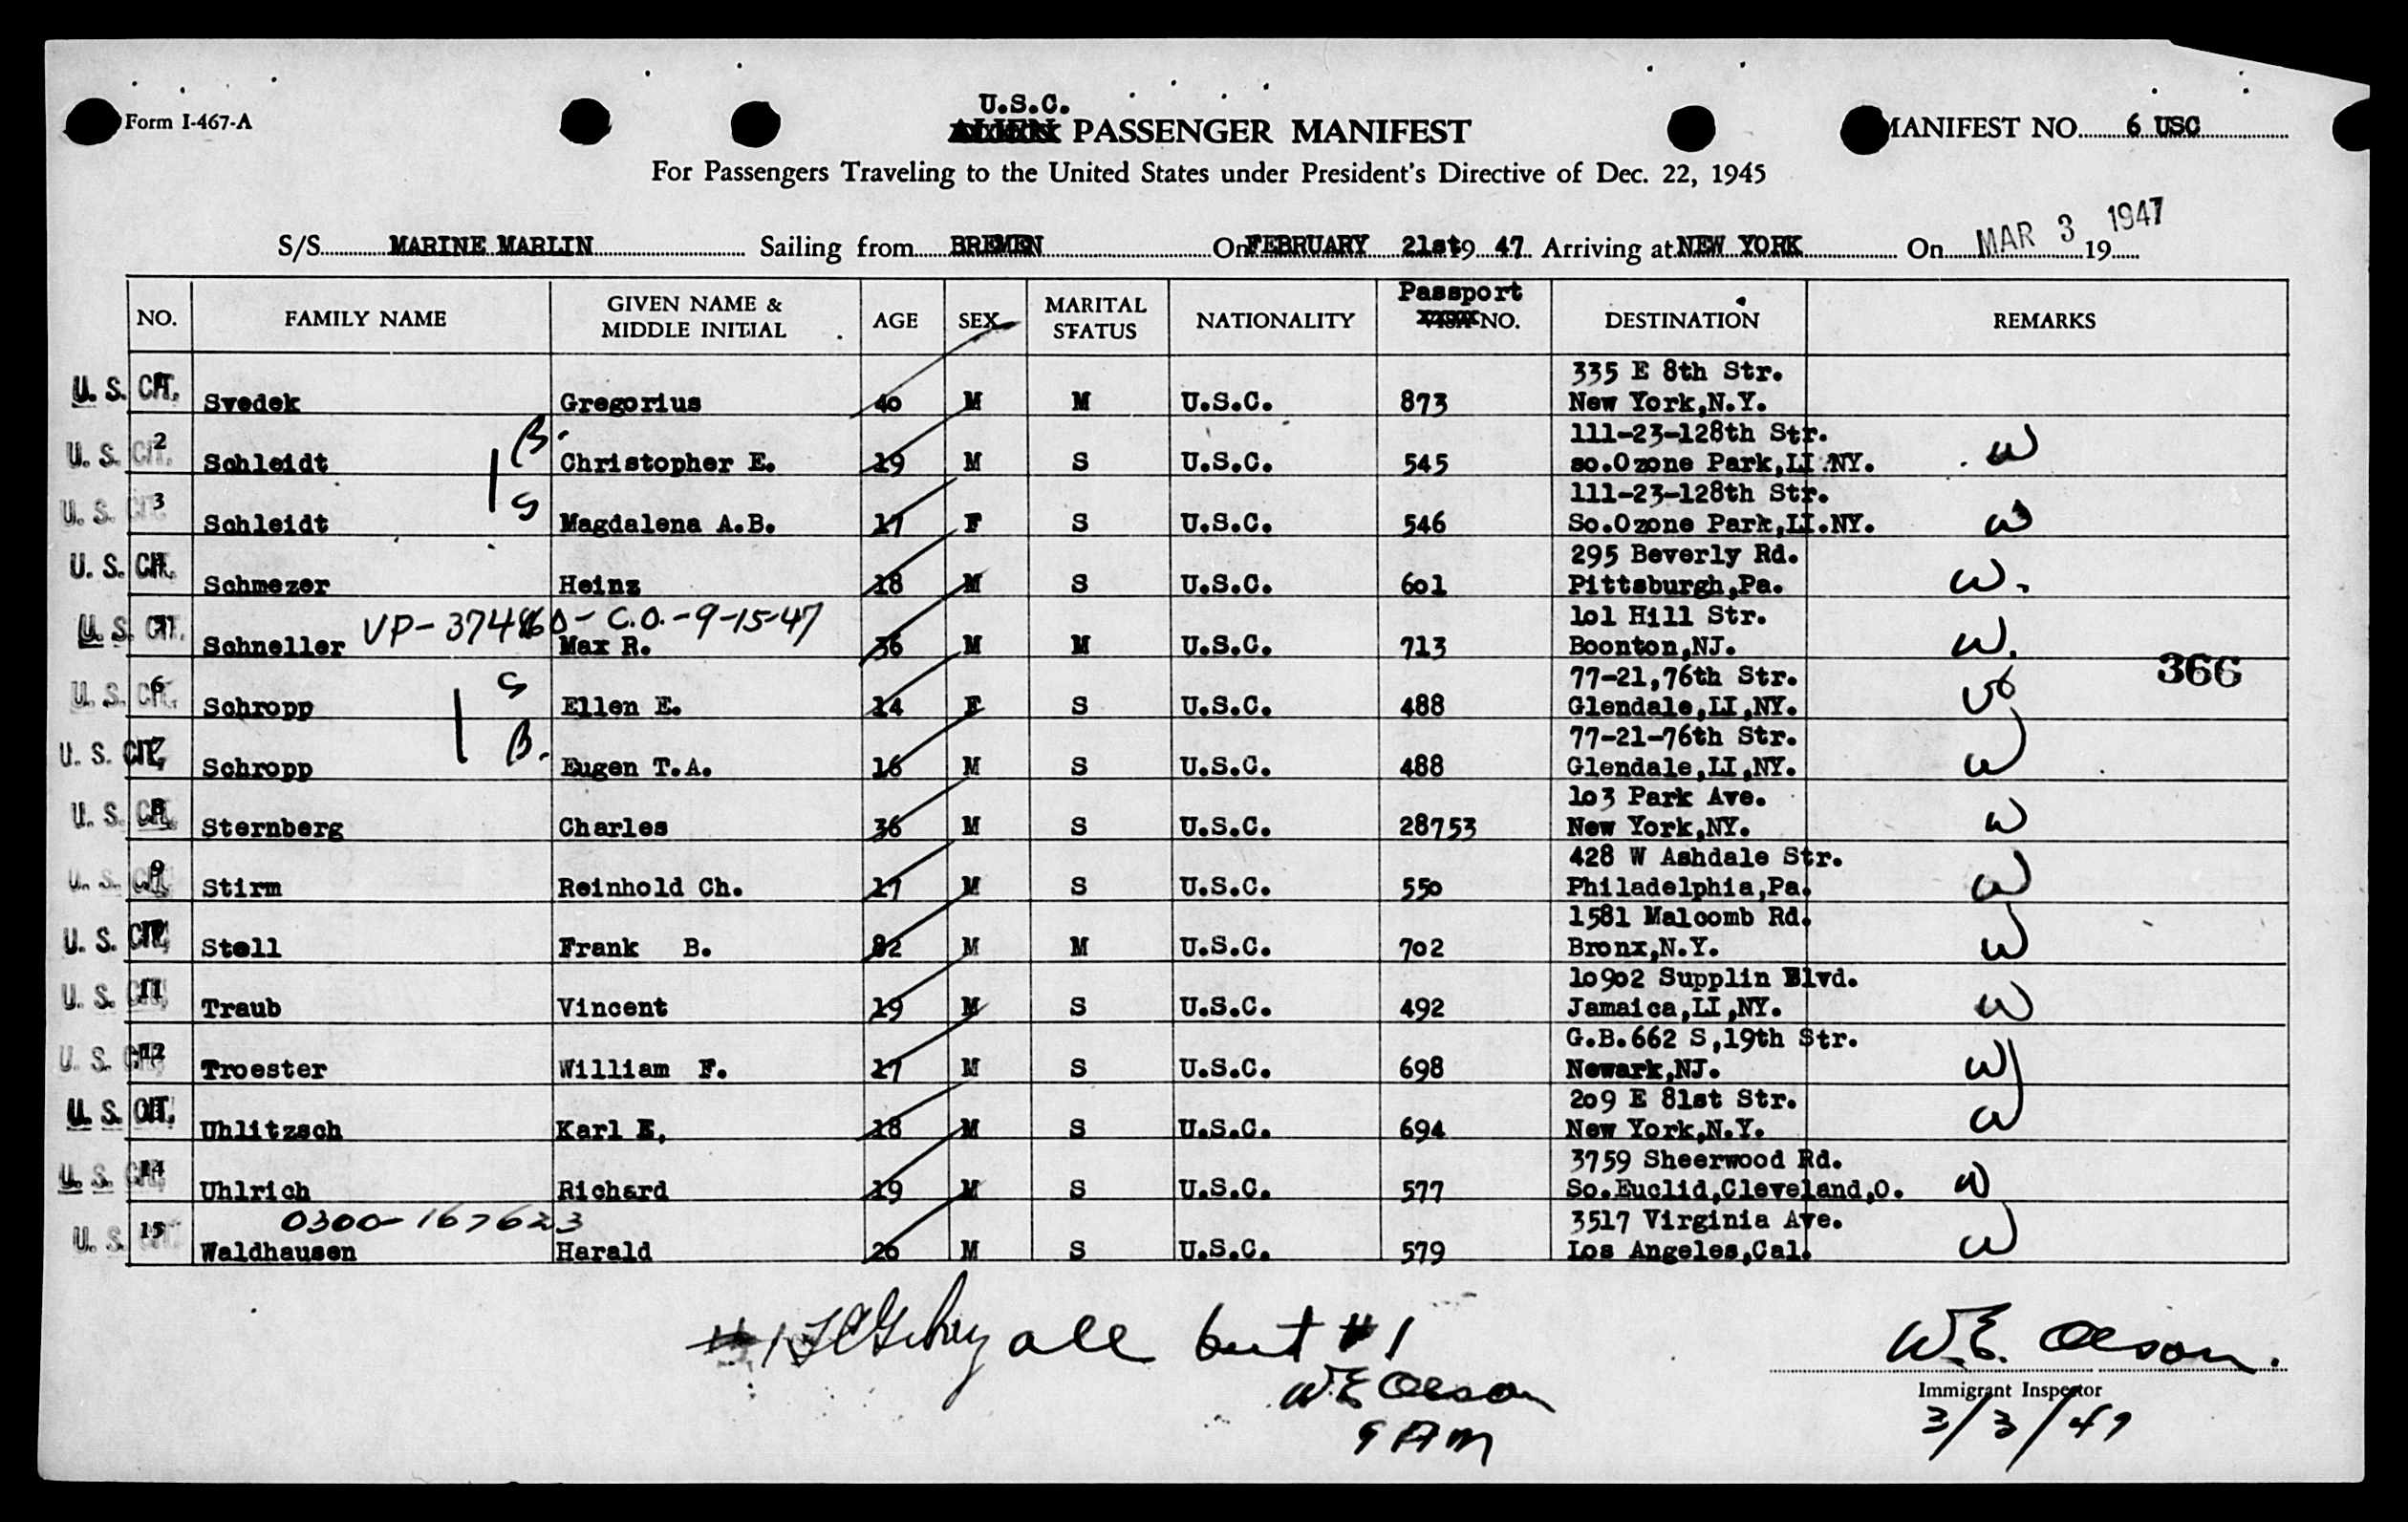 Form I-467-A
U.S.C.
ALIEN PASSENGER MANIFEST
MANIFEST NO. 6 USC
For Passengers Traveling to the United States under President's Directive of Dec. 22, 1945
S/S MARINE MARLIN Sailing from BREMEN On FEBRUARY 21st 19 47 Arriving at NEW YORK On MAR 3 1947 19
NO. FAMILY NAME GIVEN NAME & MIDDLE INITIAL AGE SEX MARITAL STATUS NATIONALITY Passport VISA NO. DESTINATION REMARKS
335 E 8th Str.
U. S. CIT. 1 Svedek Gregorius 40 M M U.S.C. 873 New York,N.Y.
B. 111-23-128th Str.
U. S. CIT. 2 Schleidt Christopher E. 19 M S U.S.C. 545 so.Ozone Park,LI.NY. W
S 111-23-128th Str.
U. S. CIT. 3 Schleidt Magdalena A.B. 17 F S U.S.C. 546 So.Ozone Park,LI.NY. W
295 Beverly Rd.
U. S. CIT. 4 Schmezer Heinz 18 M S U.S.C. 601 Pittsburgh,Pa. W.
VP- C.O.-9-15-47 101 Hill Str.
U. S. CIT. 5 Schneller Max R. 36 M M U.S.C. 713 Boonton,NJ. W.
366
S 77-21,76th Str.
U. S. CIT. 6 Schropp Ellen E. 14 F S U.S.C. 488 Glendale,LI,NY. W
B. 77-21-76th Str.
U. S. CIT. 7 Schropp Eugen T.A. 16 M S U.S.C. 488 Glendale,LI,NY. W
103 Park Ave.
U. S. CIT. 8 Sternberg Charles 36 M S U.S.C. 28753 New York,NY. W
428 W Ashdale Str.
U. S. CIT. 9 Stirm Reinhold Ch. 17 M S U.S.C. 550 Philadelphia,Pa. W
1581 Malcomb Rd.
U. S. CIT. 10 Stoll Frank B. M M U.S.C. 702 Bronx,N.Y. W
10902 Supplin Blvd.
U. S. CIT. 11 Traub Vincent 19 M S U.S.C. 492 Jamaica,LI,NY. W
G.B.662 S,19th Str.
U. S. CIT. 12 Troester William F. 17 M S U.S.C. 698 Newark,NJ. W
209 E 81st Str.
U. S. CIT. 13 Uhlitzsch Karl E, 18 M S U.S.C. 694 New York,N.Y. W
3759 Sheerwood Rd.
U. S. CIT. 14 Uhlrich Richard 19 M S U.S.C. 577 So.Euclid,Cleveland,O. W
0300-167623 3517 Virginia Ave.
U. S. CIT. 15 Waldhausen Harald 26 M S U.S.C. 579 Los Angeles,Cal. W
all but #1
W.E. Olson
9 AM
W.E. Olson.
Immigrant Inspector
3/3/47